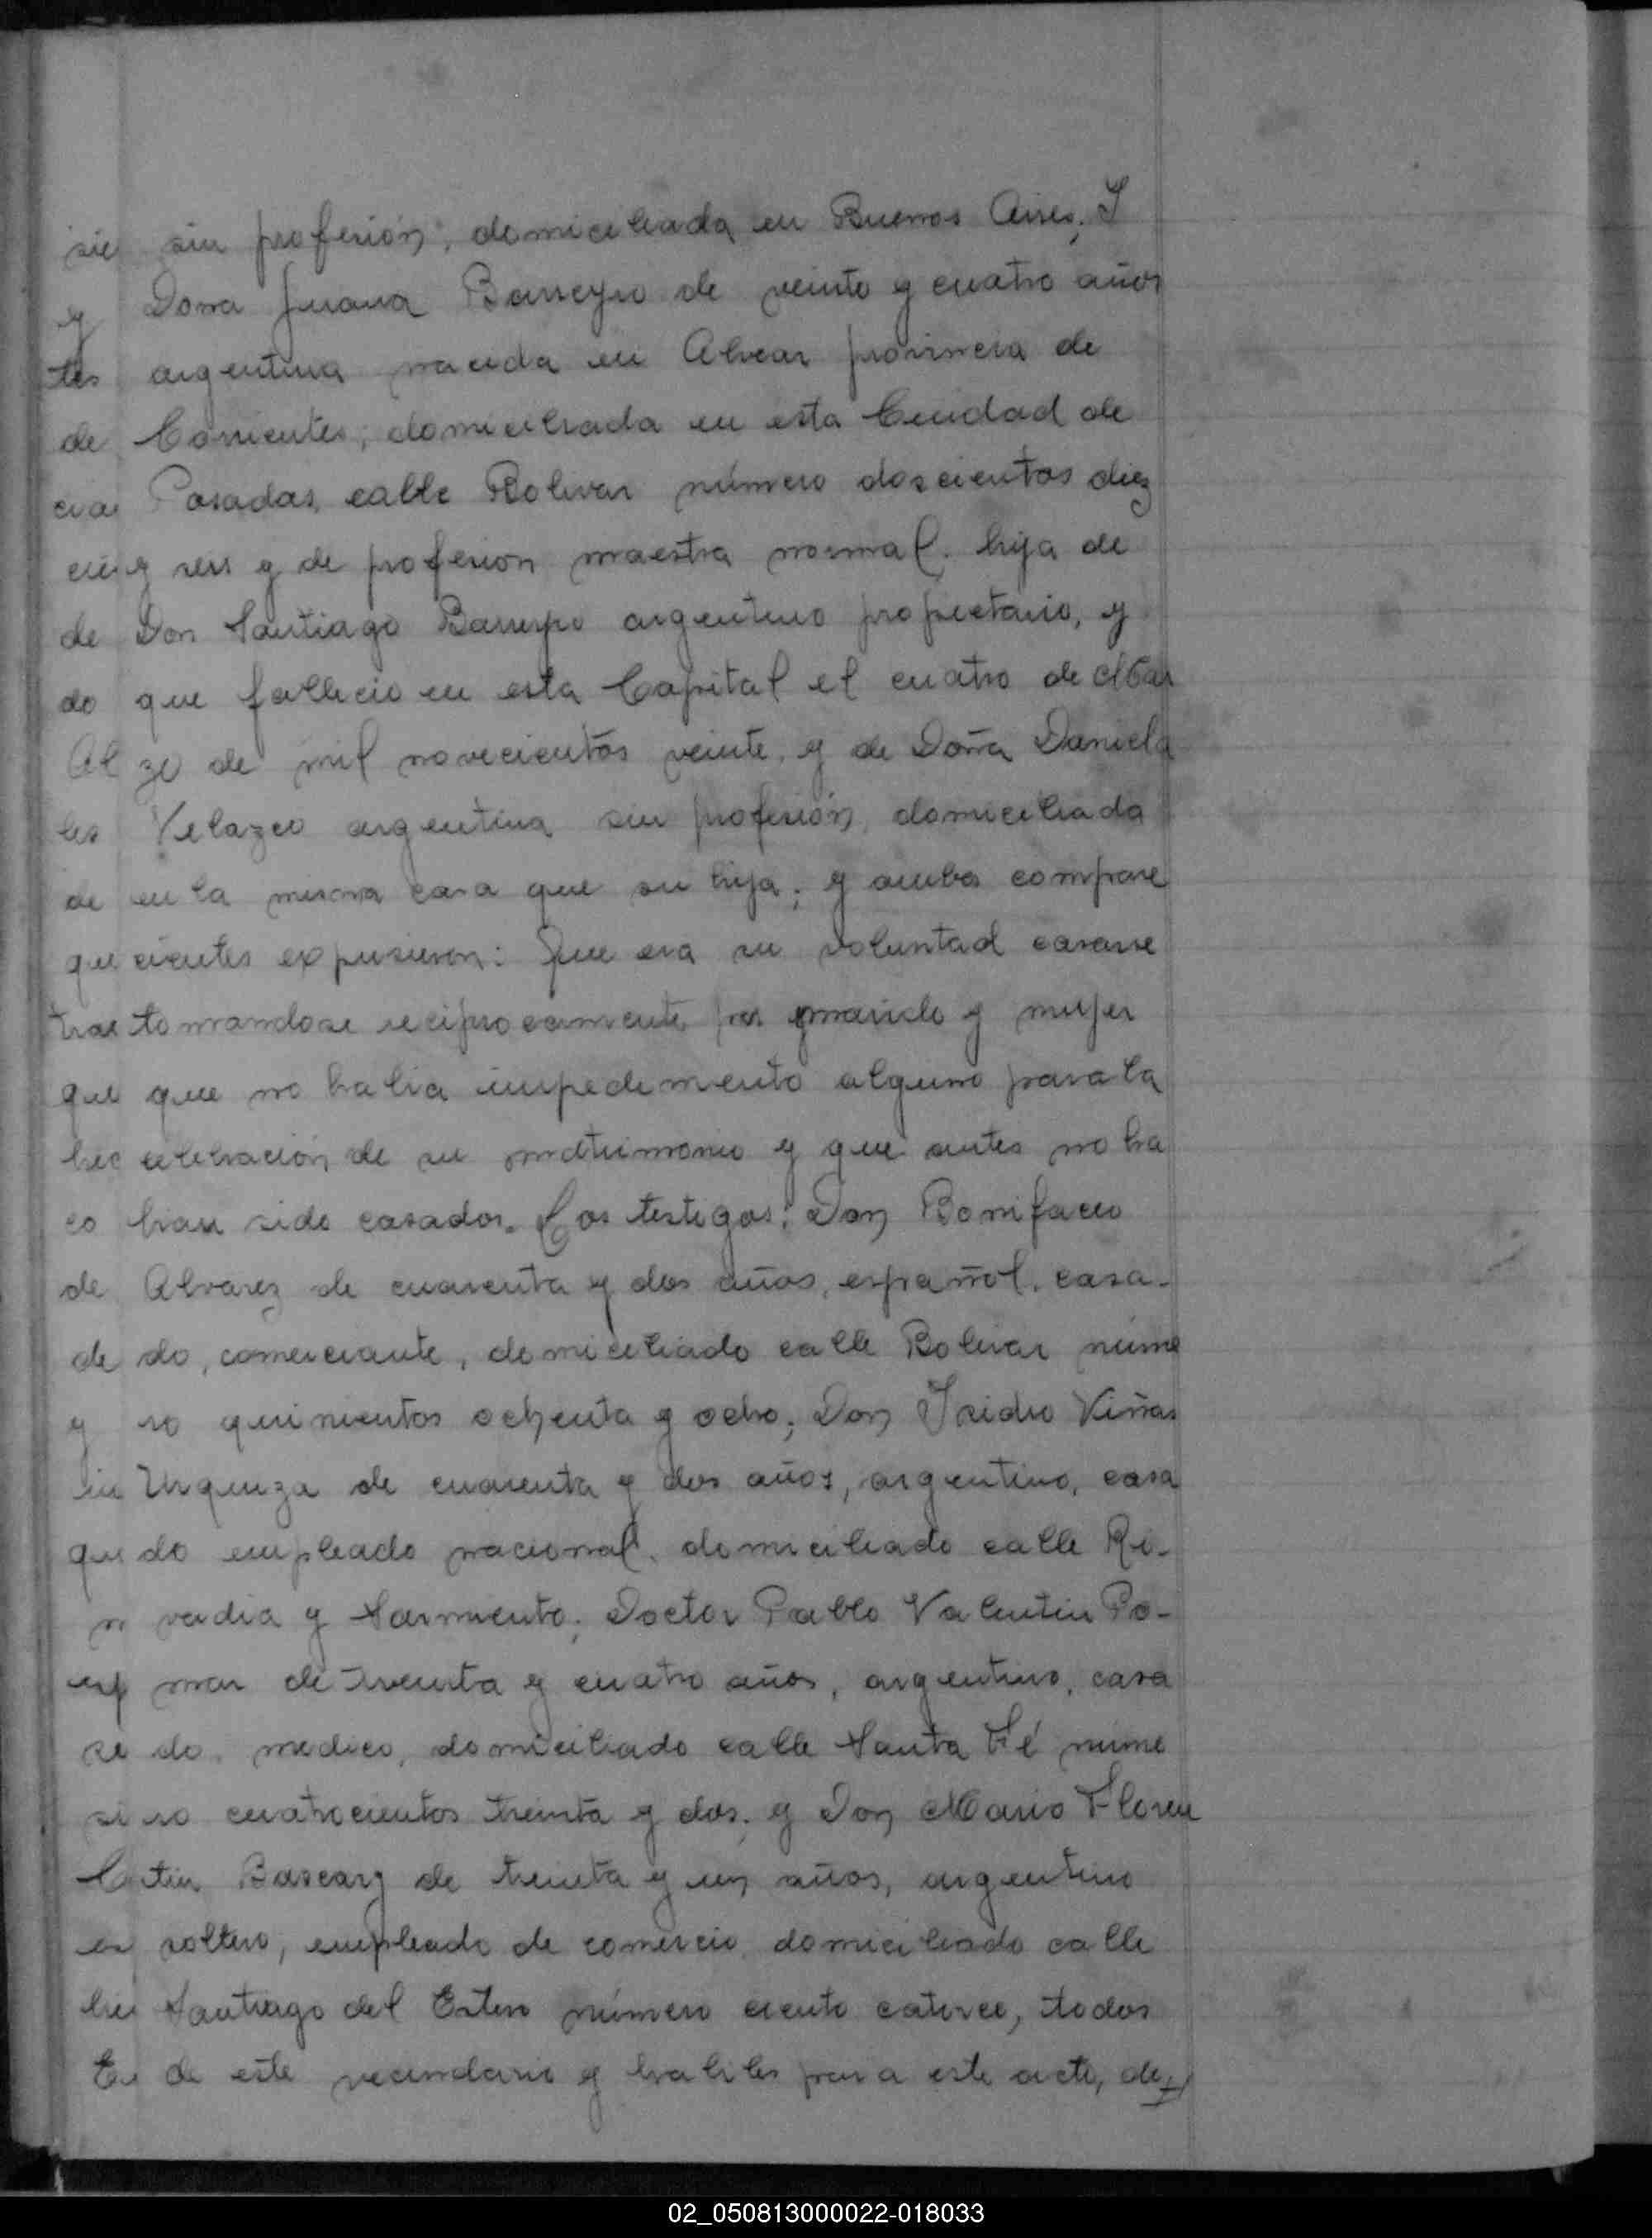 sie sin profesión, domiciliada en Buenos Aires, Y
y Doña Juana Barreyro de veinte y cuatro años
tes argentina nacida en Alvear provincia de
de Corrientes, domiciliada en esta Ciudad de
cia Posadas, calle Bolivar número doscientos diez
cie y seis y de profesion maestra normal, hija de
de Don Santiago Barreyro argentino propietario, y
do que fallecio en esta Capital el cuatro de Mar
Al zo de mil novecientos veinte, y de Doña Daniela
les Velazco argentina sin profesión, domiciliada
de en la misma casa que su hija; y ambos compare
que cientes expusieron: Que era su voluntad casarse
tras tomandose reciprocamente por marido y mujer
que que no habia impedimento alguno para la
hec celebración de su matrimonio y que antes no ha
co bian sido casados. Los testigos: Don Bonifacio
de Alvarez de cuarenta y dos años, español, casa-
de do, comerciante, domiciliado calle Bolivar núme
y ro quinientos ochenta y ocho; Don Isidro Viñas
Urquiza de cuarenta y dos años, argentino, casa
que do empleado nacional, domiciliado calle Ri-
n vadia y Sarmiento; Doctor Pablo Valentin Po-
esp mar de treinta y cuatro años, argentino, casa
se do, medico, domiciliado calle Santa Fé núme
si ro cuatrocientos treinta y dos; y Don Mario Floren
C tin Bascary de treinta y un años, argentino
soltero, empleado de comercio, domiciliado calle
Santiago del Estero número ciento catorce, todos
En de este vecindario y habiles para este acto, de